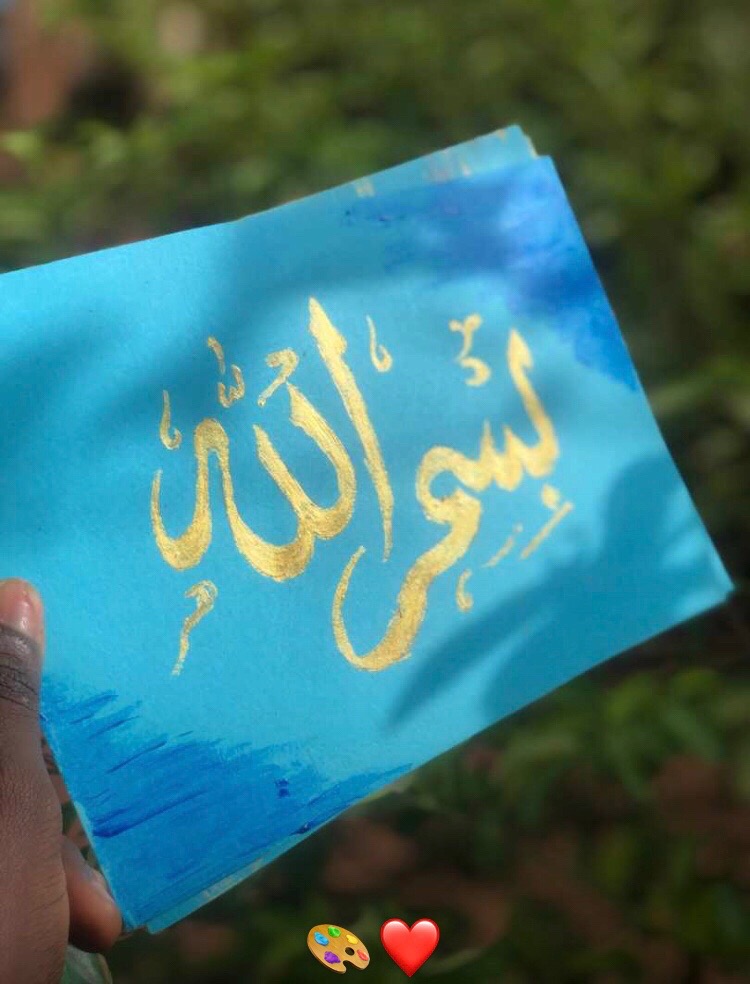 بِسْمِ اللهِ